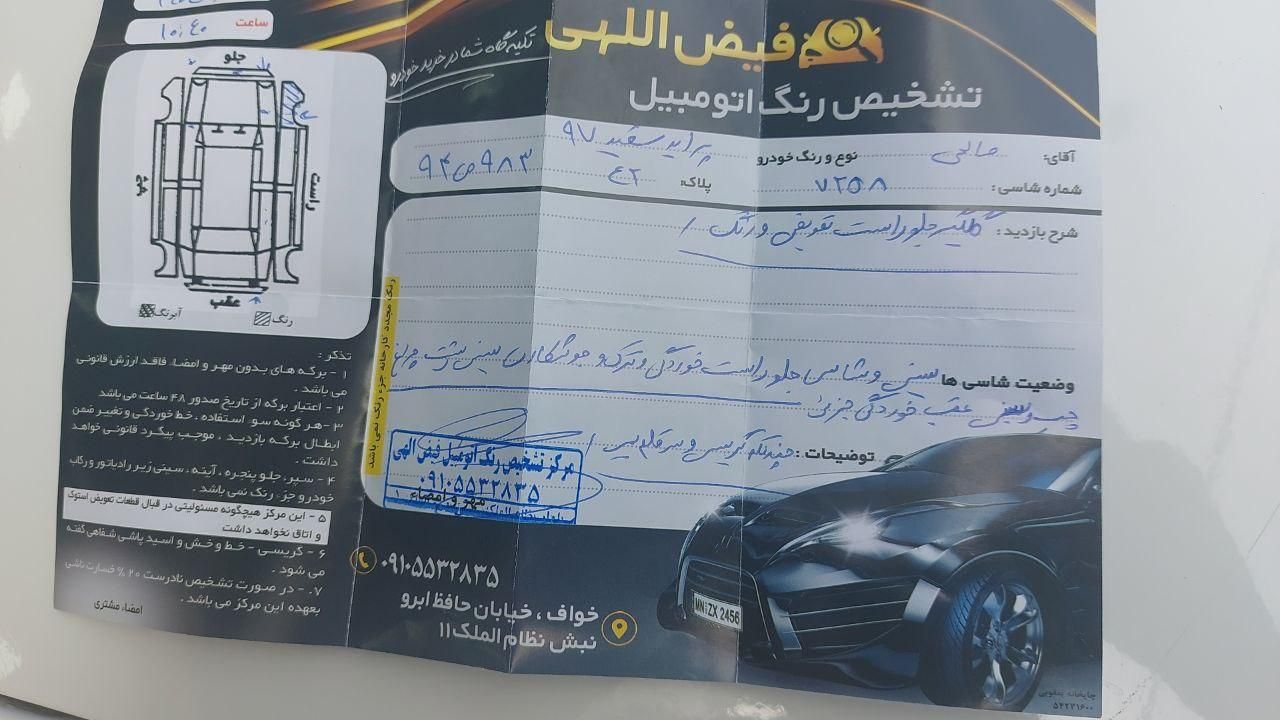 فیض اللهی
تکیه گاه شما در خرید خودرو
تشخیص رنگ اتومبیل
آقای: صالحی نوع و رنگ خودرو پراید سفید ۹۷
شماره شاسی: ۷۲۵۸ پلاک: ۴۲ ۹۸۳ ص ۹۴
شرح بازدید: گلگیر جلو راست تعویض و رنگ /
وضعیت شاسی ها سینی و شاسی جلو راست خوردگی و ترک و جوشکاری سینی پشت چراغ
چپ سینی عقب خوردگی جزئی
توضیحات: چند تکه گریسی و سر قلاویز /
رنگ مجدد کارخانه جزء رنگ نمی باشد
مرکز تشخیص رنگ اتومبیل فیض الهی
۰۹۱۰۵۵۳۲۸۳۵
مهر و امضاء
۰۹۱۰۵۵۳۲۸۳۵
خواف ، خیابان حافظ ابرو
نبش نظام الملک ۱۱
MN:ZX 2456
چاپخانه یعقوبی
۵۴۲۳۱۶۰۰
ساعت ۱۰:۴۰
جلو
راست
چپ
عقب
رنگ
آبرنگ
تذکر :
۱ - برگه های بدون مهر و امضاء فاقد ارزش قانونی
می باشد .
۲ - اعتبار برگه از تاریخ صدور ۴۸ ساعت می باشد
۳- هر گونه سوء استفاده ، خط خوردگی و تغییر ضمن
ابطال برگه بازدید ، موجب پیگرد قانونی خواهد
داشت .
۴ - سپر، جلو پنجره ، آینه ، سینی زیر رادیاتور و رکاب
خودرو جزء رنگ نمی باشد .
۵ - این مرکز هیچگونه مسئولیتی در قبال قطعات تعویض استوک
و اتاق نخواهد داشت
۶ - گریسی - خط و خش و اسید پاشی شفاهی گفته
می شود .
۷ - در صورت تشخیص نادرست ۲۰ % خسارت ناشی
بعهده این مرکز می باشد .
امضاء مشتری